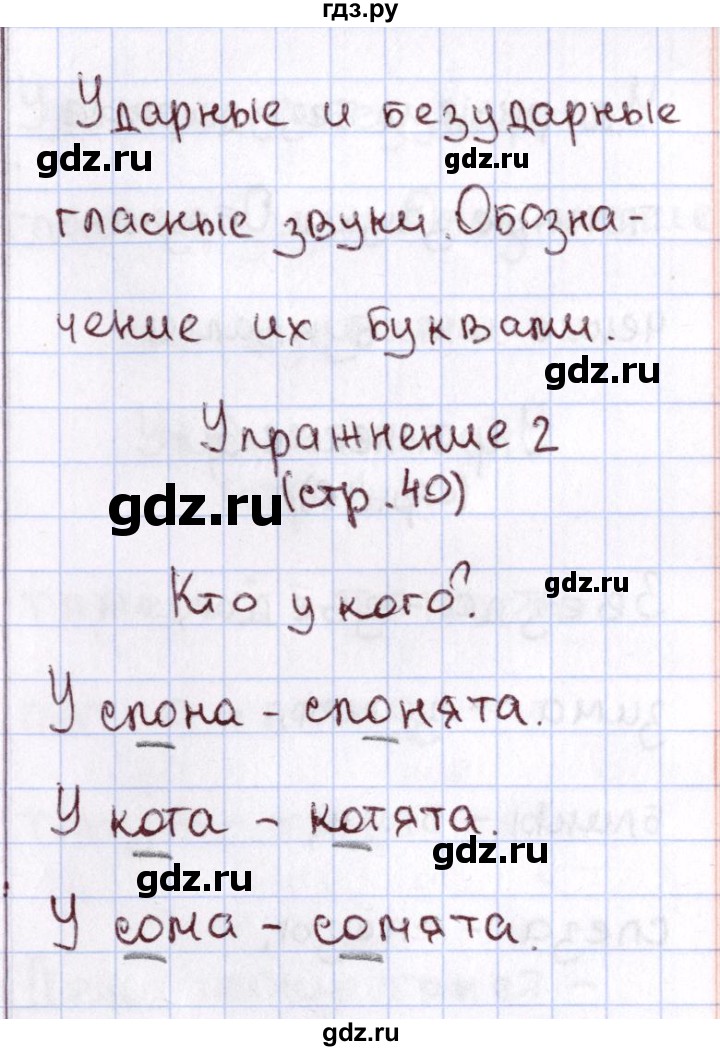 гдз.ру
Ударные и безударные
gdz.ru gdz.ru
гласные звуки. Обозна-
чение их буквами.
gdz.ru
Упражнение 2
gdz.ru (стр. 40)
Кто у кого? gdz.ru
У слона - слонята.
У кота - котята.
gdz.ru gdz.ru
У сома - сомята.
gdz.ru